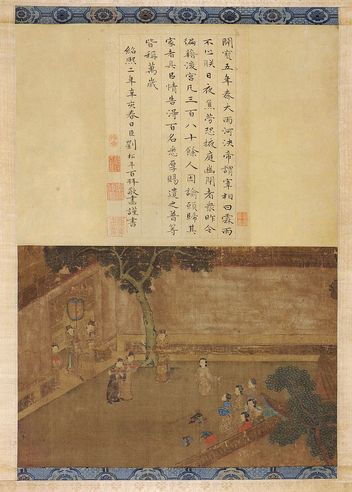 開寶五年春大雨河決帝謂宰相曰霖雨
不止朕日夜焦勞恐掖庭幽閉者衆昨令
編籍後宮凡三百八十餘人因諭願歸其
家者具㠯情告得百名悉厚賜遣之普等
皆稱萬歲
紹熙二年辛亥春日臣劉松年百拜敬畫謹書